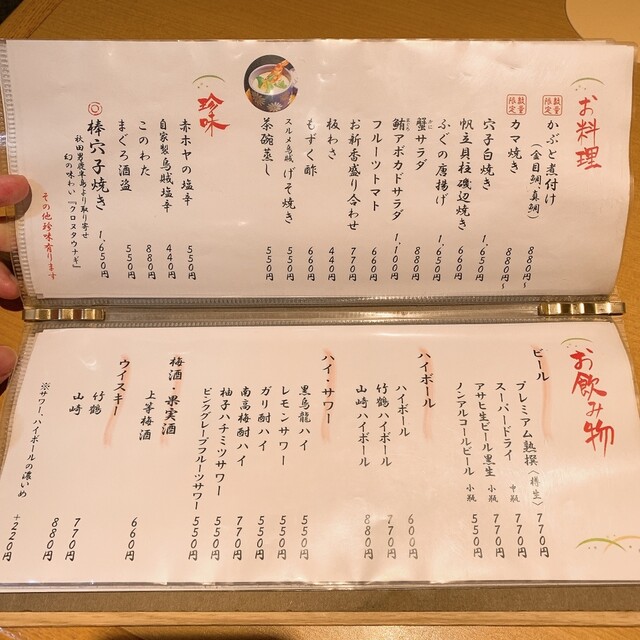 お料理
数量限定 かぶと煮付け（金目鯛、真鯛） 880円〜
数量限定 カマ焼き 880円〜
穴子白焼き 1,650円
帆立貝柱磯辺焼き 660円
ふぐの唐揚げ 1,650円
蟹サラダ 880円
鮪アボカドサラダ 1,100円
フルーツトマト 660円
お新香盛り合わせ 770円
板わさ 440円
もずく酢 660円
スルメ烏賊げそ焼き 550円
茶碗蒸し 550円
珍味
赤ホヤの塩辛 550円
自家製烏賊塩辛 440円
このわた 880円
まぐろ酒盗 550円
棒穴子焼き 1,650円
秋田男鹿半島より取り寄せ
幻の味わい『クロヌタウナギ』
その他珍味有ります
お飲み物
ビール
プレミアム熟撰（樽生） 770円
スーパードライ 中瓶 770円
アサヒ生ビール黒生 小瓶 770円
ノンアルコールビール 小瓶 550円
ハイボール
ハイボール 600円
竹鶴ハイボール 770円
山崎ハイボール 880円
ハイ・サワー
黒烏龍ハイ 550円
レモンサワー 550円
ガリ酎ハイ 550円
南高梅酎ハイ 770円
柚子ハチミツサワー 550円
ピンクグレープフルーツサワー 550円
梅酒・果実酒
上等梅酒 660円
ウイスキー
竹鶴 770円
山崎 880円
※サワー、ハイボールの濃いめ +220円